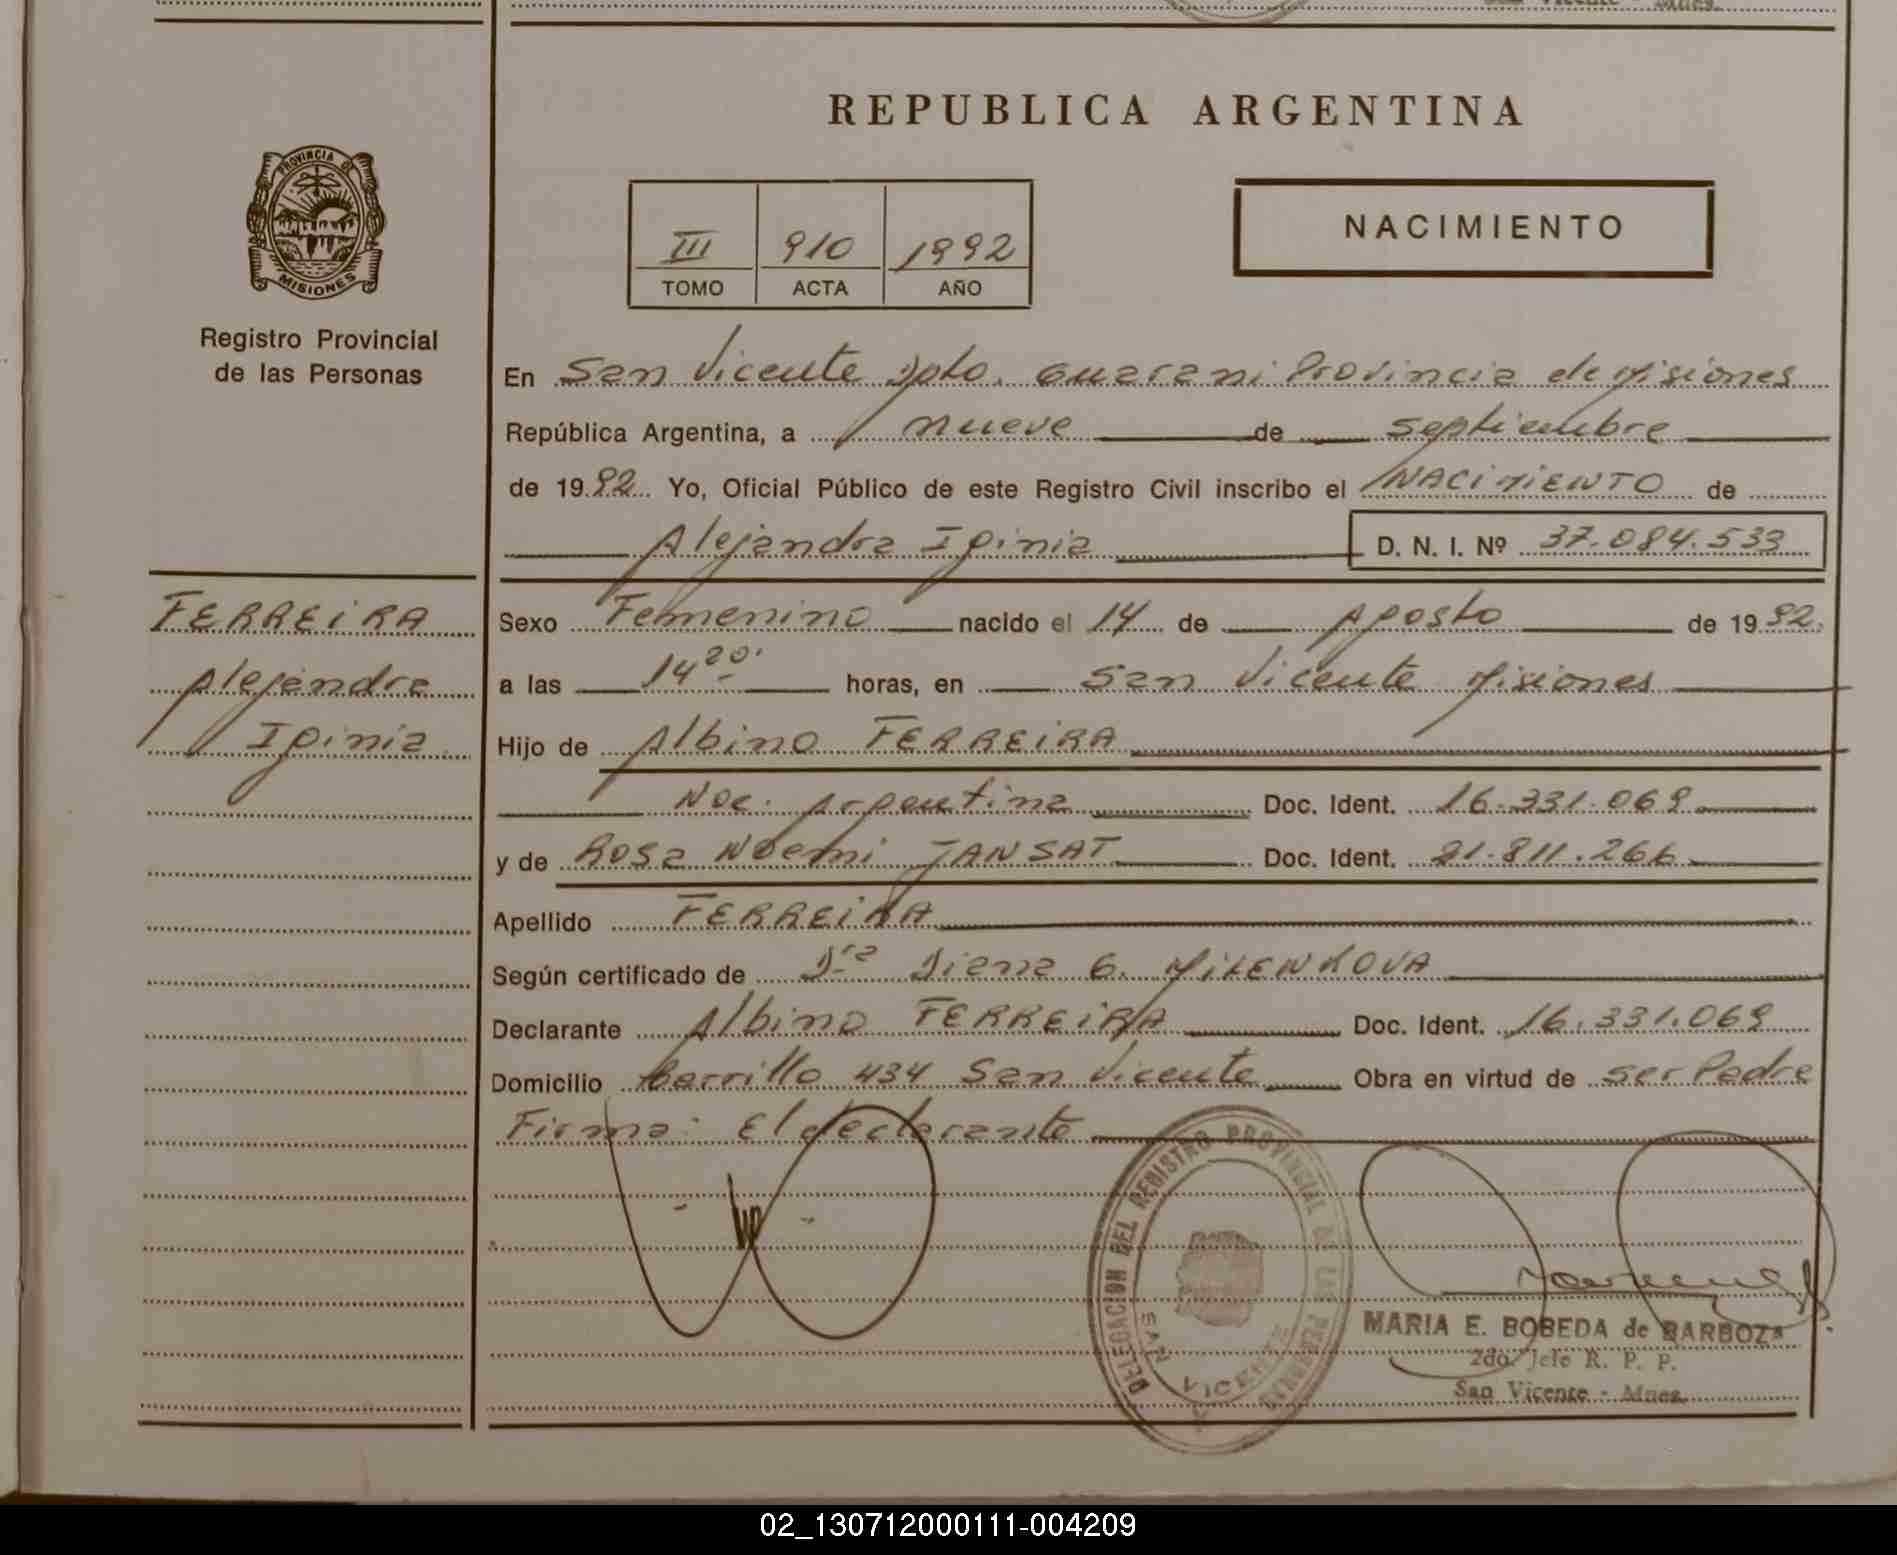 San Vicente - Mnes.
REPUBLICA ARGENTINA
PROVINCIA DE
MISIONES
III 910 1992
TOMO ACTA AÑO
NACIMIENTO
Registro Provincial
de las Personas
En San Vicente Dpto. Guarani Provincia de Misiones
República Argentina, a nueve de septiembre
de 1992 Yo, Oficial Público de este Registro Civil inscribo el NACIMIENTO de
Alejandra Iginia D. N. I. Nº 37.084.533
FERREIRA
Alejandra
Iginia
Sexo Femenino nacido el 14 de Agosto de 1992.
a las 14 20. horas, en San Vicente Misiones
Hijo de Albino FERREIRA
Nac. Argentina Doc. Ident. 16.331.069
y de Rosa Noemi JANSAT Doc. Ident. 21.811.266
Apellido FERREIRA
Según certificado de Dra Diana G. MILENKOVA
Declarante Albino FERREIRA Doc. Ident. 16.331.069
Domicilio Carrillo 434 San Vicente Obra en virtud de ser Padre
Firma: El declarante
DELEGACION DEL REGISTRO PROVINCIAL DE LAS PERSONAS
SAN VICENTE
MARIA E. BOBEDA de BARBOZA
2do. Jefe R. P. P.
San Vicente - Mnes.
02_130712000111-004209